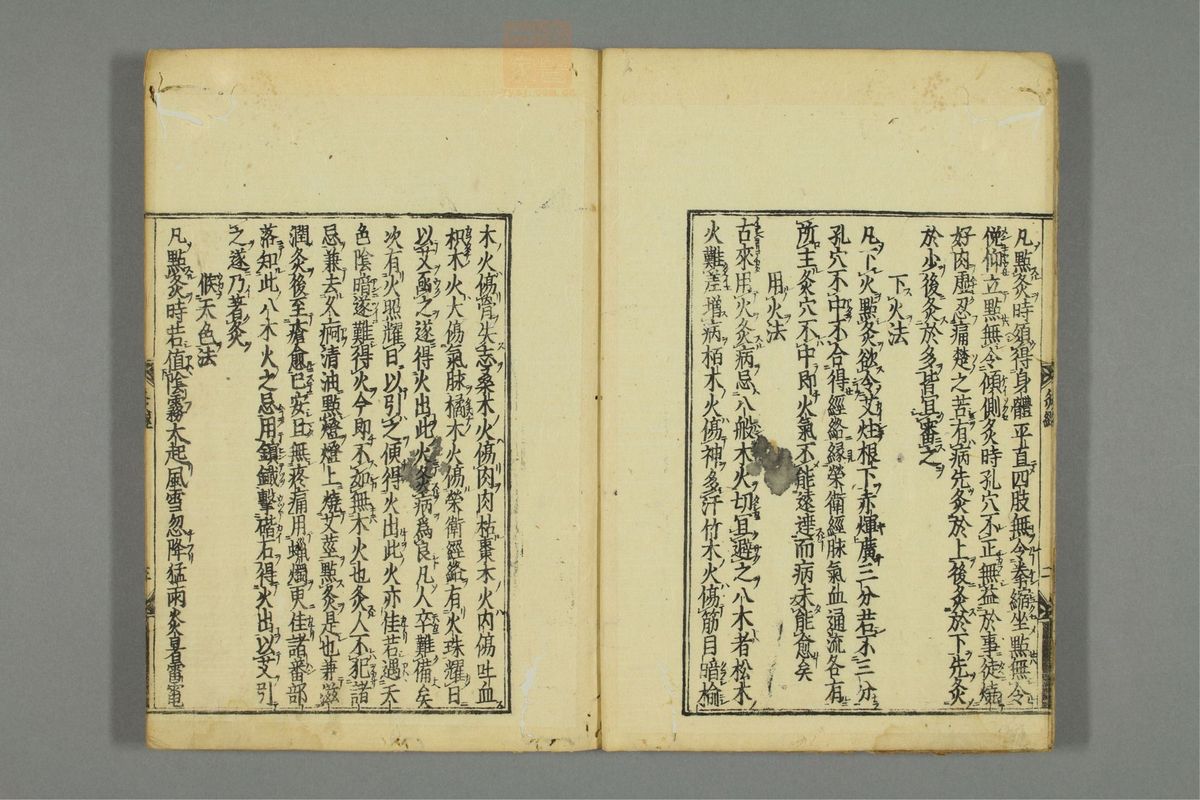 凡點灸時須得身體平直四肢無令拳縮坐點無令
俛仰立點無令傾側灸時孔穴不正無益於事徒燒
好肉虛忍痛楚之苦有病先灸於上後灸於下先灸
於少後灸於多皆宜審之
下火法
凡下火點灸欲令艾炷根下赤煇廣三分若不三分
孔穴不中不合得經絡緣榮衛經脉氣血通流各有
所主灸穴不中即火氣不能遠達而病未能愈矣
用火法
古來用火灸病忌八般木火切宜避之八木者松木
火難差增病栢木火傷神多汗竹木火傷筋目暗榆
木火傷骨失志桑木火傷肉肉枯棗木火內傷吐血
枳木火大傷氣脉橘木火傷榮衛經絡有火珠耀日
以艾承之遂得火出此火灸病爲良凡人卒難備矣
次有火照耀日以引之便得火出此火亦佳若遇天
色陰暗遂難得火今即不如無木火也灸人不犯諸
忌兼去久痾清油點燈燈上燒艾莖點灸是也兼滋
潤灸後至瘡愈已安且無疼痛用蠟燭更佳諸番部
落知此八木火之忌用鑌鐵擊䃈石得火出以艾引
之遂乃著灸
候天色法
凡點灸時若值陰霧大起風雪忽降猛雨炎暑雷電